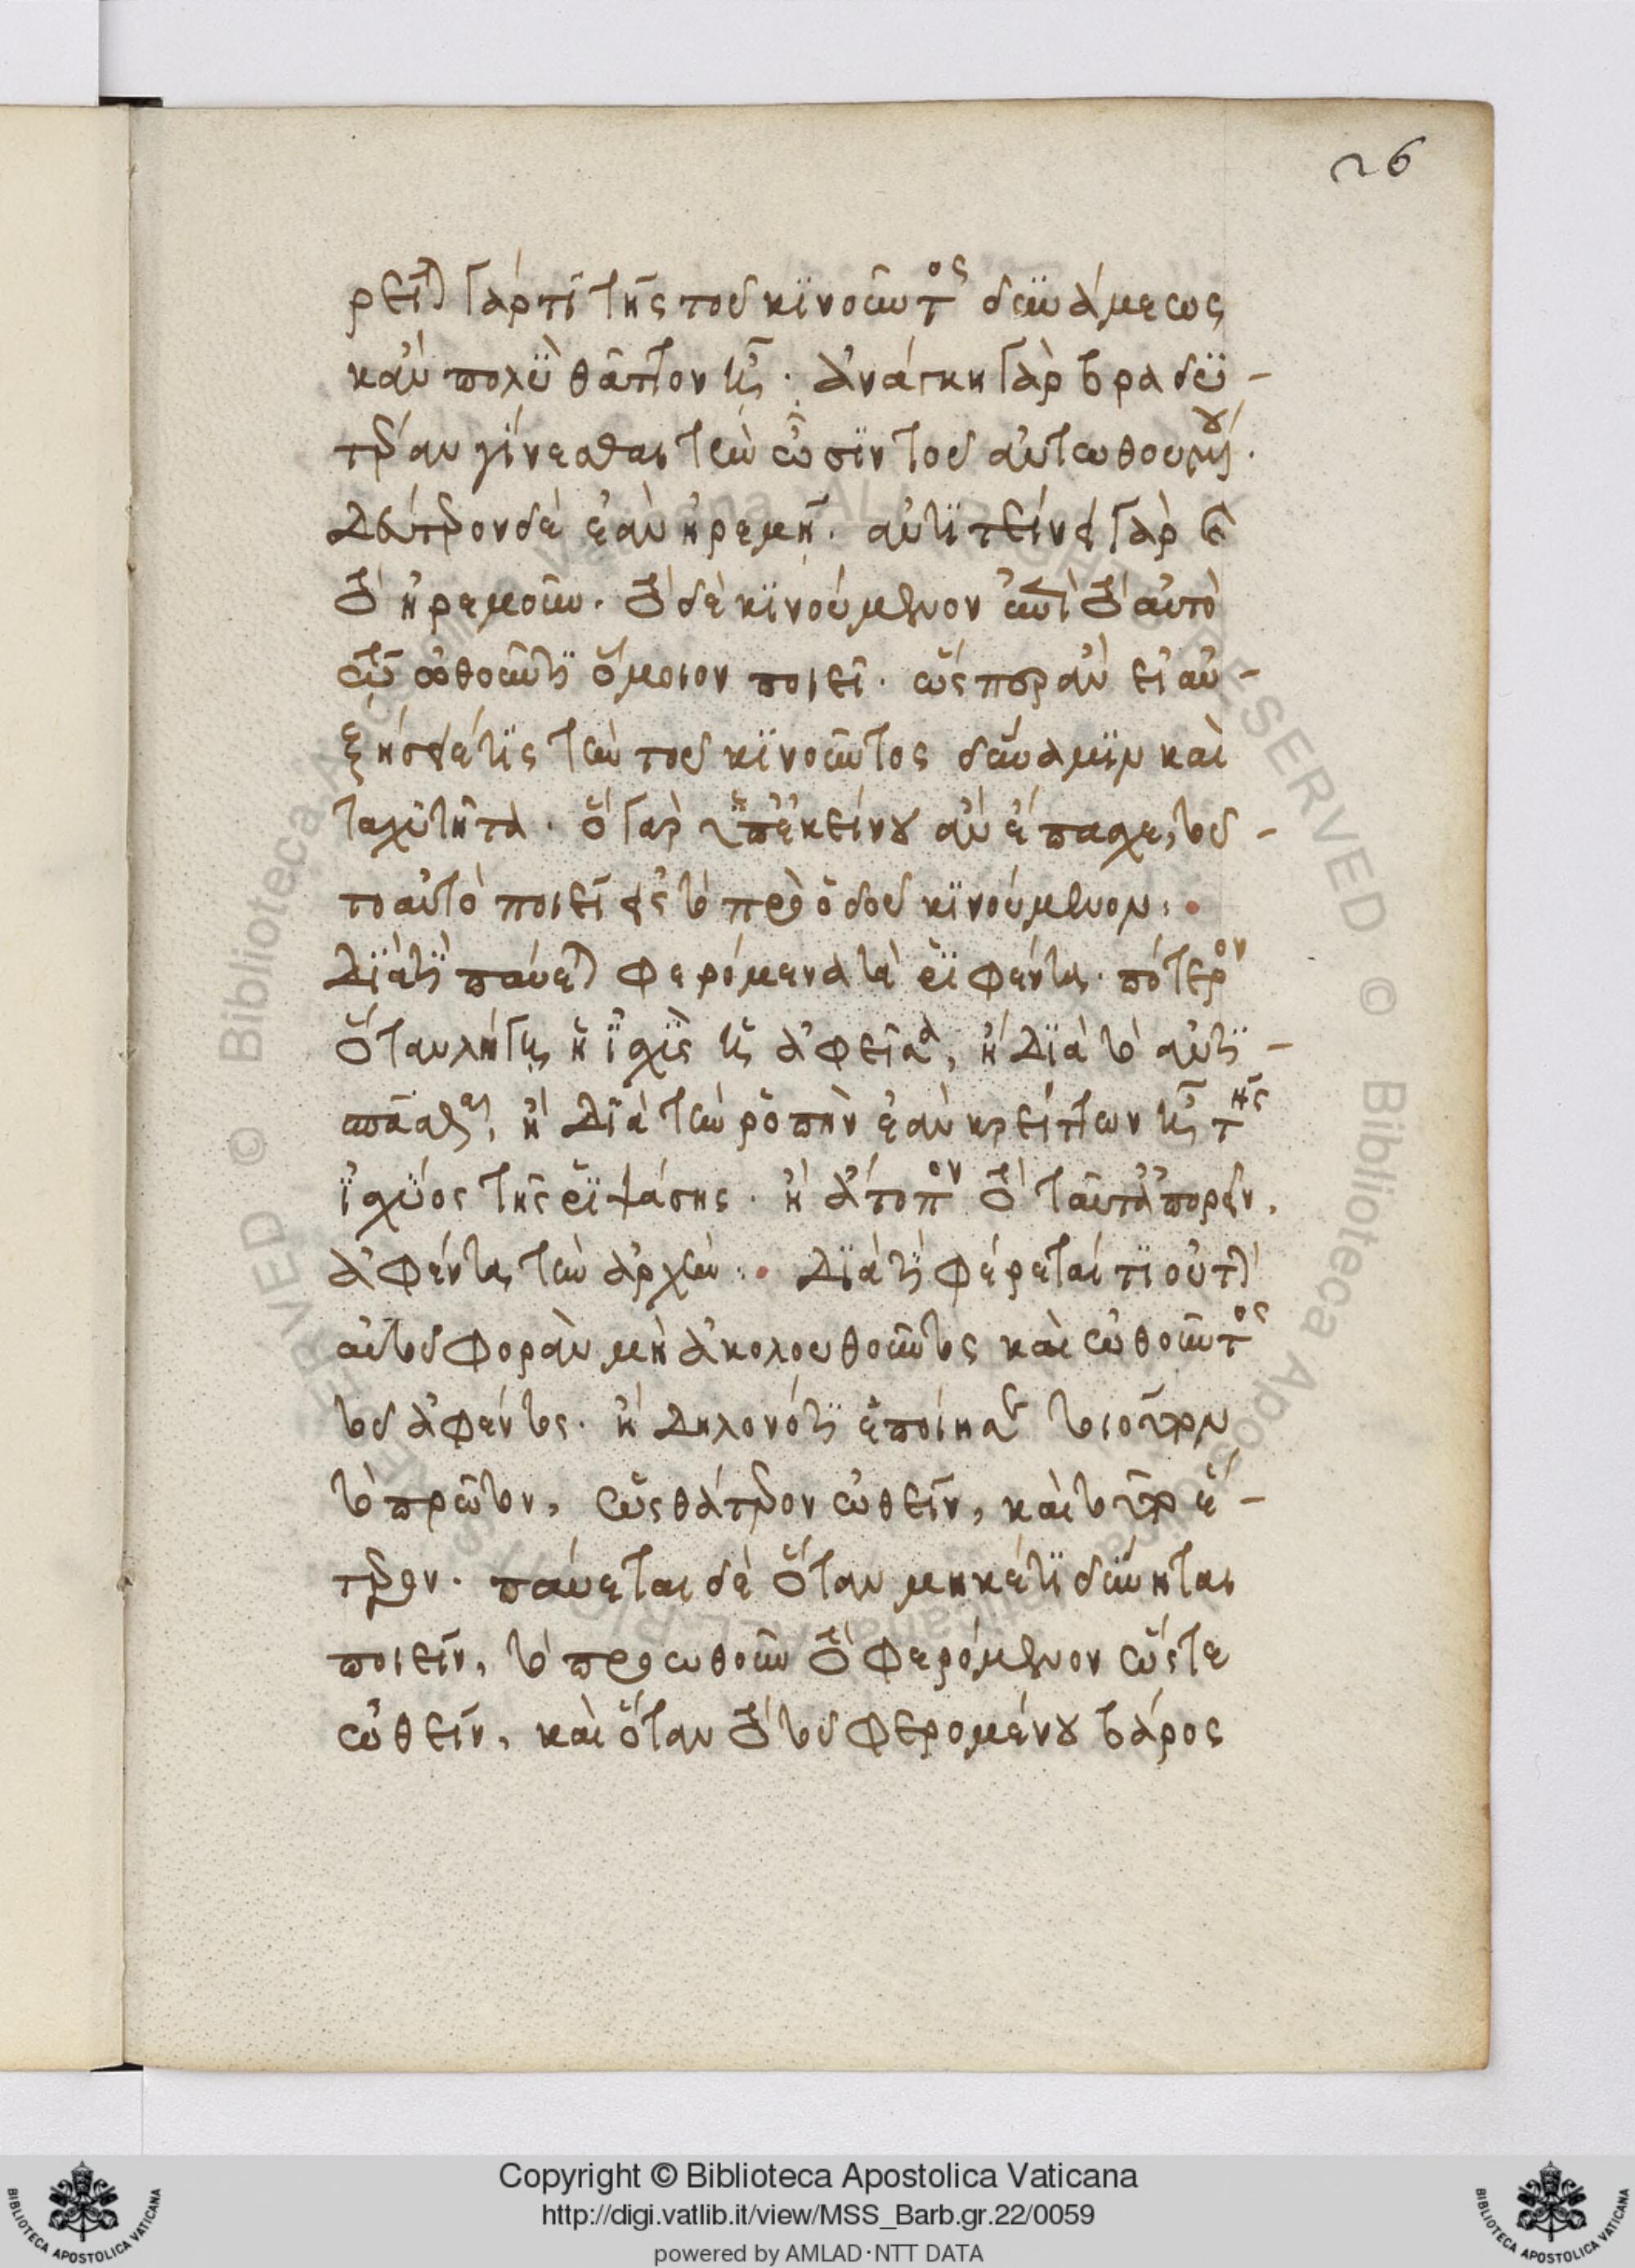 26
ρεῖται γάρ τι τῆς τοῦ κινοῦντος δυνάμεως
κἂν πολὺ θᾶττον ᾖ. ἀνάγκη γὰρ βραδυ-
τέραν γίνεσθαι τὴν ὦσιν τοῦ αὐτωθουμένου.
Δεύτερον δὲ ἐὰν ἠρεμῇ. ἀντιτείνει γὰρ ἔτι
τὸ ἠρεμοῦν. τὸ δὲ κινούμενον ἐπὶ τὸ αὐτὸ
τῷ ὠθοῦντι ὅμοιον ποιεῖ. ὥσπερ ἂν εἰ αὐ-
ξήσειέ τις τὴν τοῦ κινοῦντος δύναμιν καὶ
ταχύτητα. ὃ γὰρ ὑπ' ἐκείνου ἂν ἔπασχε, τοῦ-
το αὐτὸ ποιεῖ εἰς τὸ πρὸ ὁδοῦ κινούμενον.
Διὰ τί παύεται φερόμενα τὰ ῥιφέντα. πότερον
ὅταν λήγῃ ἡ ἰσχὺς ἡ ἀφεῖσα, ἢ διὰ τὸ ἀντι-
σπᾶσθαι, ἢ διὰ τὴν ῥοπὴν ἐὰν κρείττων ᾖ τῆς
ἰσχύος τῆς ῥιψάσης. ἢ ἄτοπον τὸ ταῦτ' ἀπορεῖν,
ἀφέντα τὴν ἀρχήν. Διὰ τί φέρεταί τι οὔτε
αὐτοῦ φορὰν μὴ ἀκολουθοῦντος καὶ ὠθοῦντος
τοῦ ἀφέντος. ἢ δηλονότι ἐποίησε τοιοῦτον
τὸ πρῶτον, ὡς θάτερον ὠθεῖν, καὶ τοῦτο ἕ-
τερον. παύεται δὲ ὅταν μηκέτι δύνηται
ποιεῖν, τὸ προωθοῦν τὸ φερόμενον ὥστε
ὠθεῖν, καὶ ὅταν τὸ τοῦ φερομένου βάρος
Copyright © Biblioteca Apostolica Vaticana
http://digi.vatlib.it/view/MSS_Barb.gr.22/0059
powered by AMLAD·NTT DATA